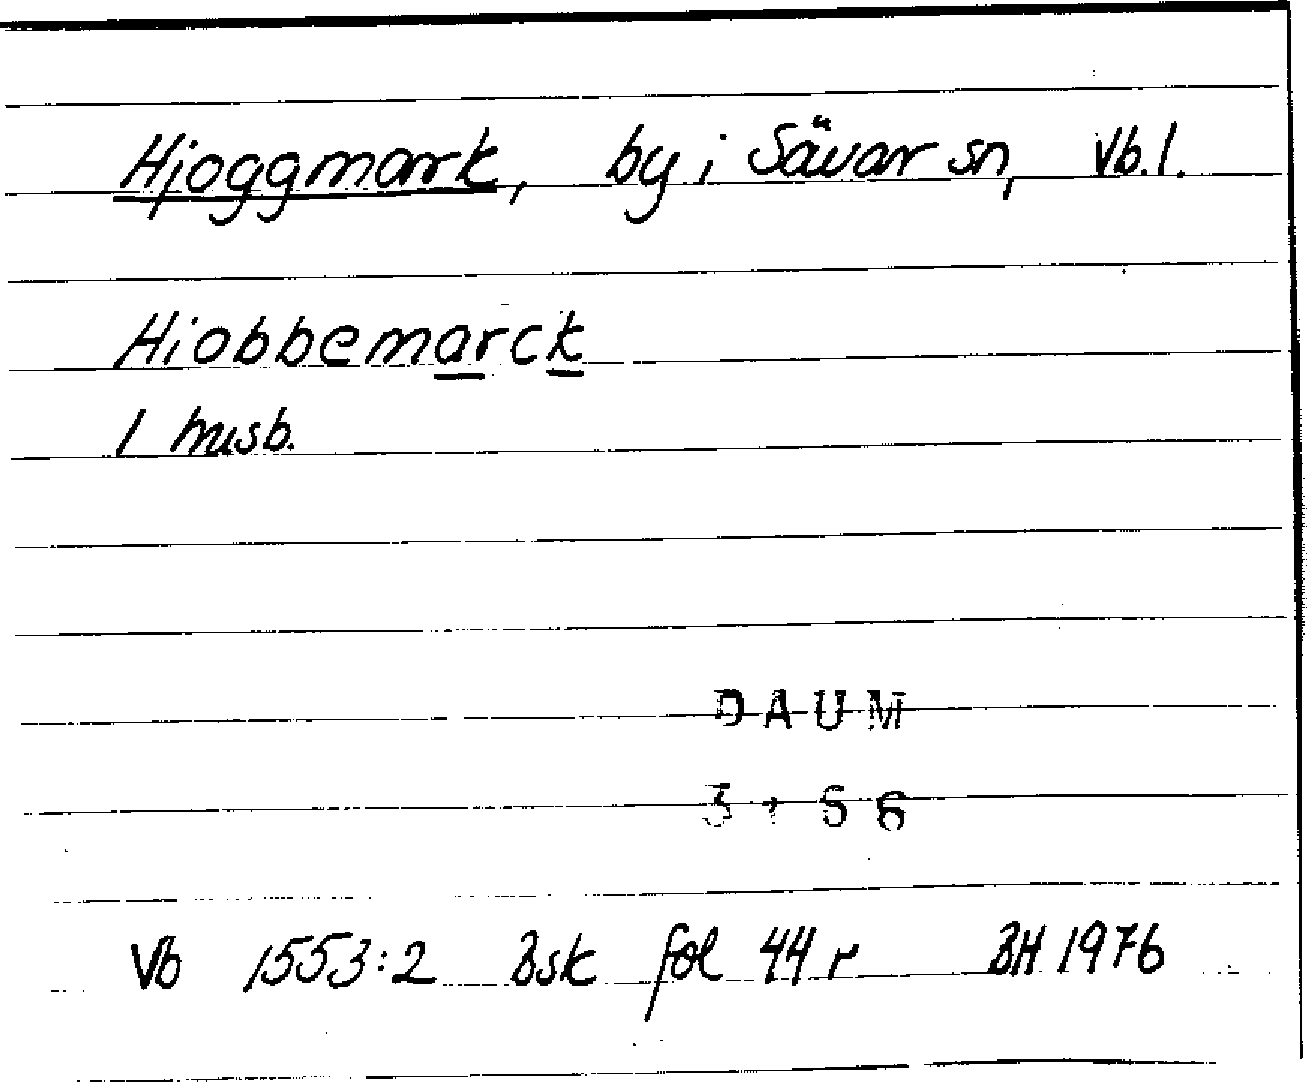 Hjoggmark, by i Sävar sn, Vb.l.
Hiobbemarck
1 husb.
DAUM
Vb 1553:2 Bsk fol 44 r BH 1976